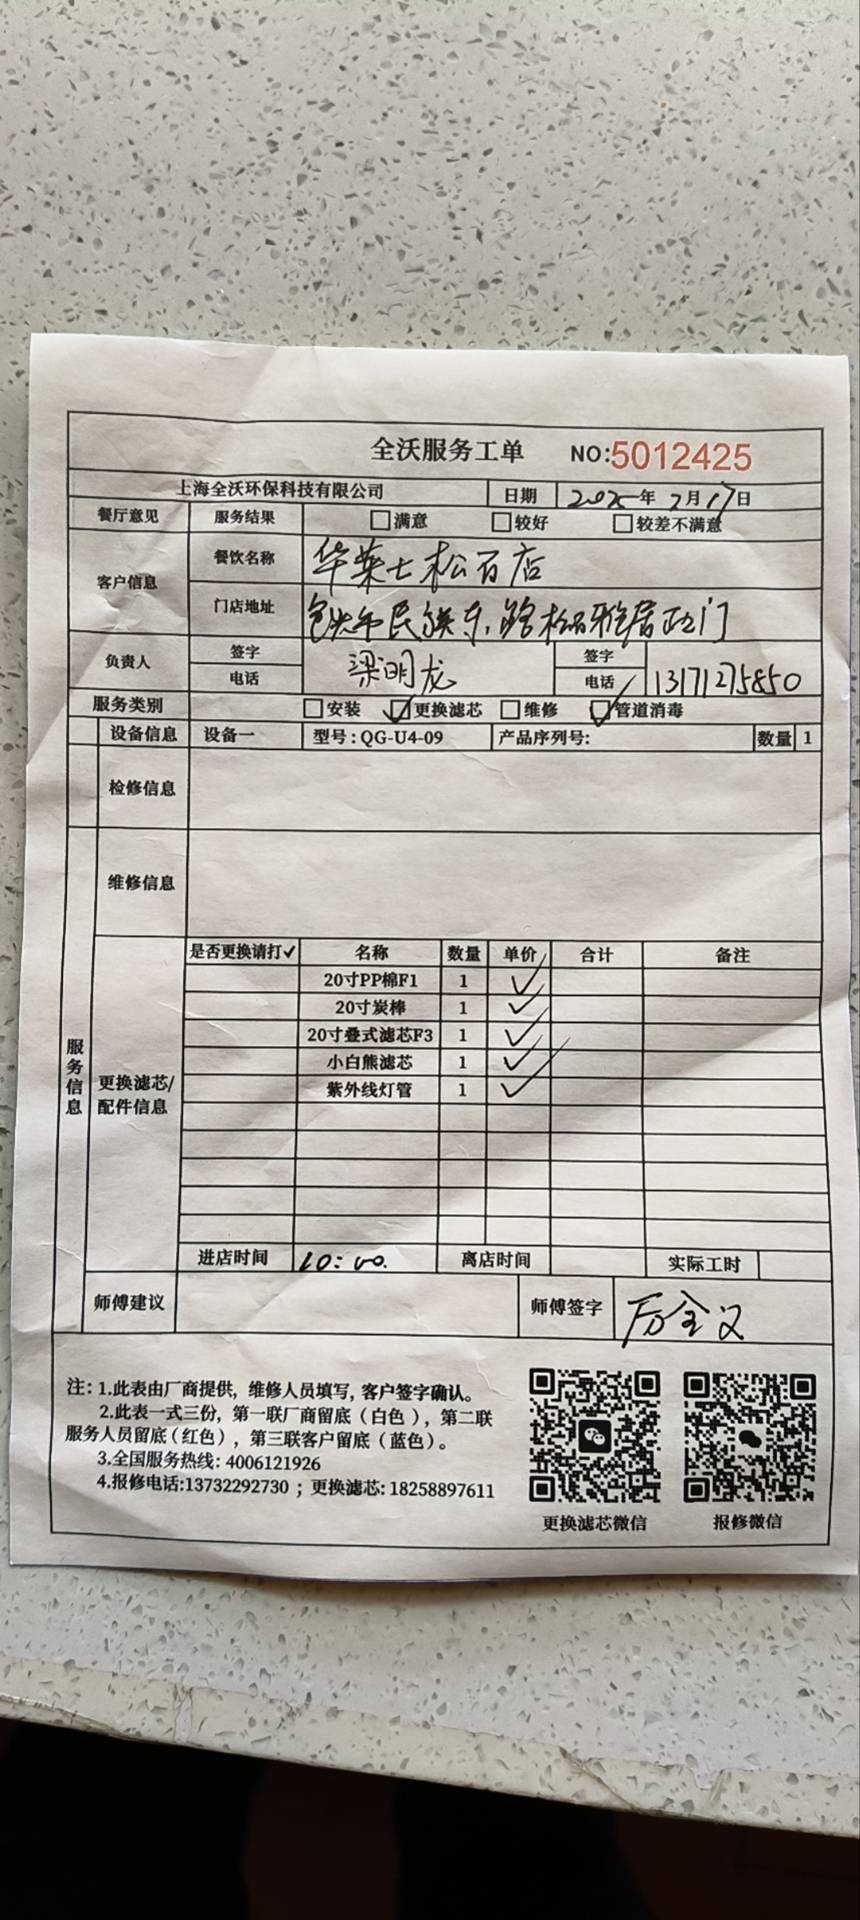 全沃服务工单 NO:5012425
上海全沃环保科技有限公司 日期 2025年 2月17日
餐厅意见 服务结果 □满意 □较好 □较差不满意
客户信息 餐饮名称 华莱士松石店
门店地址 包头市民族东路松石雅居正门
负责人 签字 梁明龙 签字
电话 电话 13171275850
服务类别 □安装 ☑更换滤芯 □维修 ☑管道消毒
设备信息 设备一 型号:QG-U4-09 产品序列号: 数量 1
检修信息
维修信息
服务信息
更换滤芯/配件信息
是否更换请打✓ 名称 数量 单价 合计 备注
20寸PP棉F1 1 ✓
20寸炭棒 1 ✓
20寸叠式滤芯F3 1 ✓
小白熊滤芯 1 ✓
紫外线灯管 1 ✓
进店时间 10:00. 离店时间 实际工时
师傅建议 师傅签字 厉全义
注: 1.此表由厂商提供, 维修人员填写, 客户签字确认。
2.此表一式三份, 第一联厂商留底（白色）, 第二联
服务人员留底（红色）, 第三联客户留底（蓝色）。
3.全国服务热线: 4006121926
4.报修电话:13732292730 ; 更换滤芯: 18258897611
更换滤芯微信 报修微信